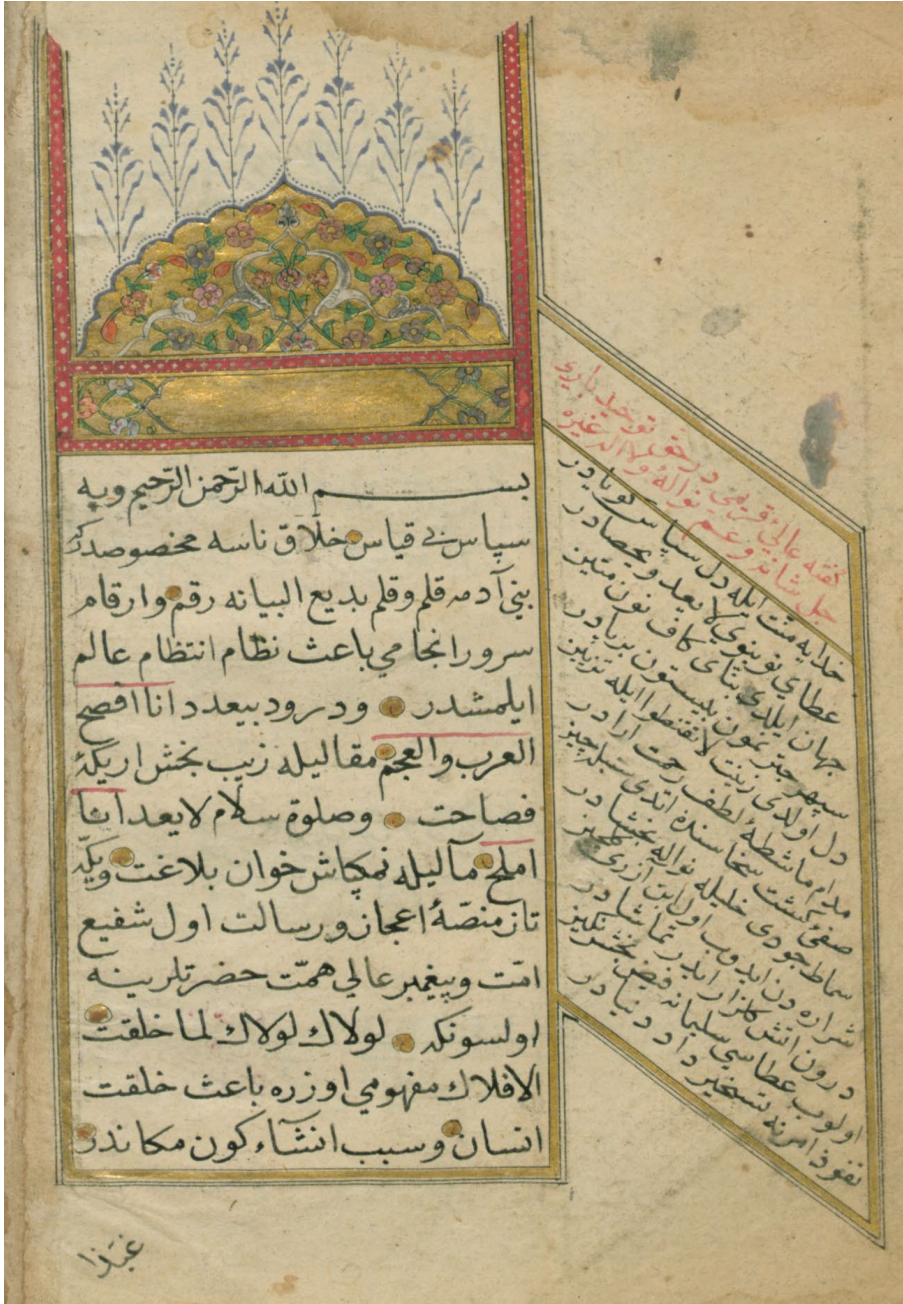 بسم الله الرحمن الرحيم وبه
سپاس بی قیاس خلّاق ناسه مخصوصدرکه
بنی آدمه قلم وقلم بدیع البیانه رقم وارقام
سرور انجامی باعث نظام انتظام عالم
ایلمشدر ودرود بیعدد انا افصح
العرب والعجم مقالیله زیب بخش اریکهٔ
فصاحت وصلوة سلام لایعد انا
املح مآلیله نمکپاش خوان بلاغت ویکّه
تاز منصّهٔ اعجاز ورسالت اول شفیع
امّت وپیغمبر عالی همّت حضرتلرینه
اولسونکه لولاك لولاك لما خلقت
الافلاك مفهومی اوزره باعث خلقت
انسان وسبب انشآء کون مکاندر
گفته عالئ قریمی در حق توحید باری
جل شانه وعم نواله ولا اله غیره
خدایه منت ایله دل سپاس کویادر
عطای نوبنوی لایعد ویحصادر
جهان ایلدی بنای کاف نون متین
سپهر خیز نمون بلیستون برپادر
دل اولدی زینت لاتقنطوا ایله تزیین
مدام ماشطهٔ لطف رحمت ارادر
سماط جودی خلیله نواله بخشادر
شراره دن ایدوب اول ابن ازری
درون آتش کلزار ایلر تماشادر
اولوب عطاسی سلیمانه فیض بخش نکین
نفوذ امرنه تسخیر داد دنیادر